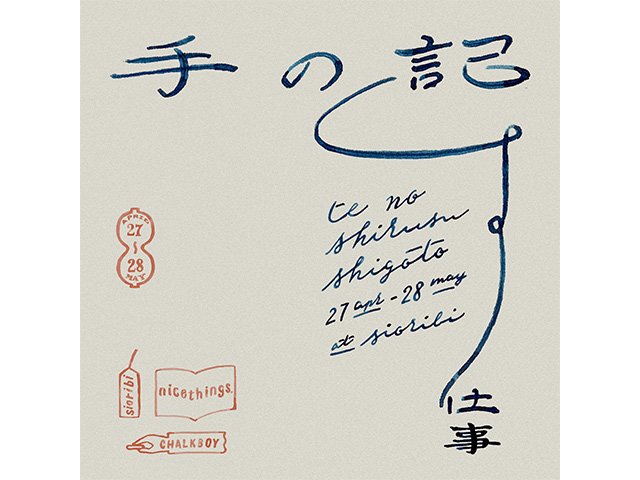 手の記す
仕事
te no
shirusu
shigoto
27 apr - 28 may
at sioribi
APRIL.
27
~
28
MAY
sioribi
nicethings.
CHALKBOY